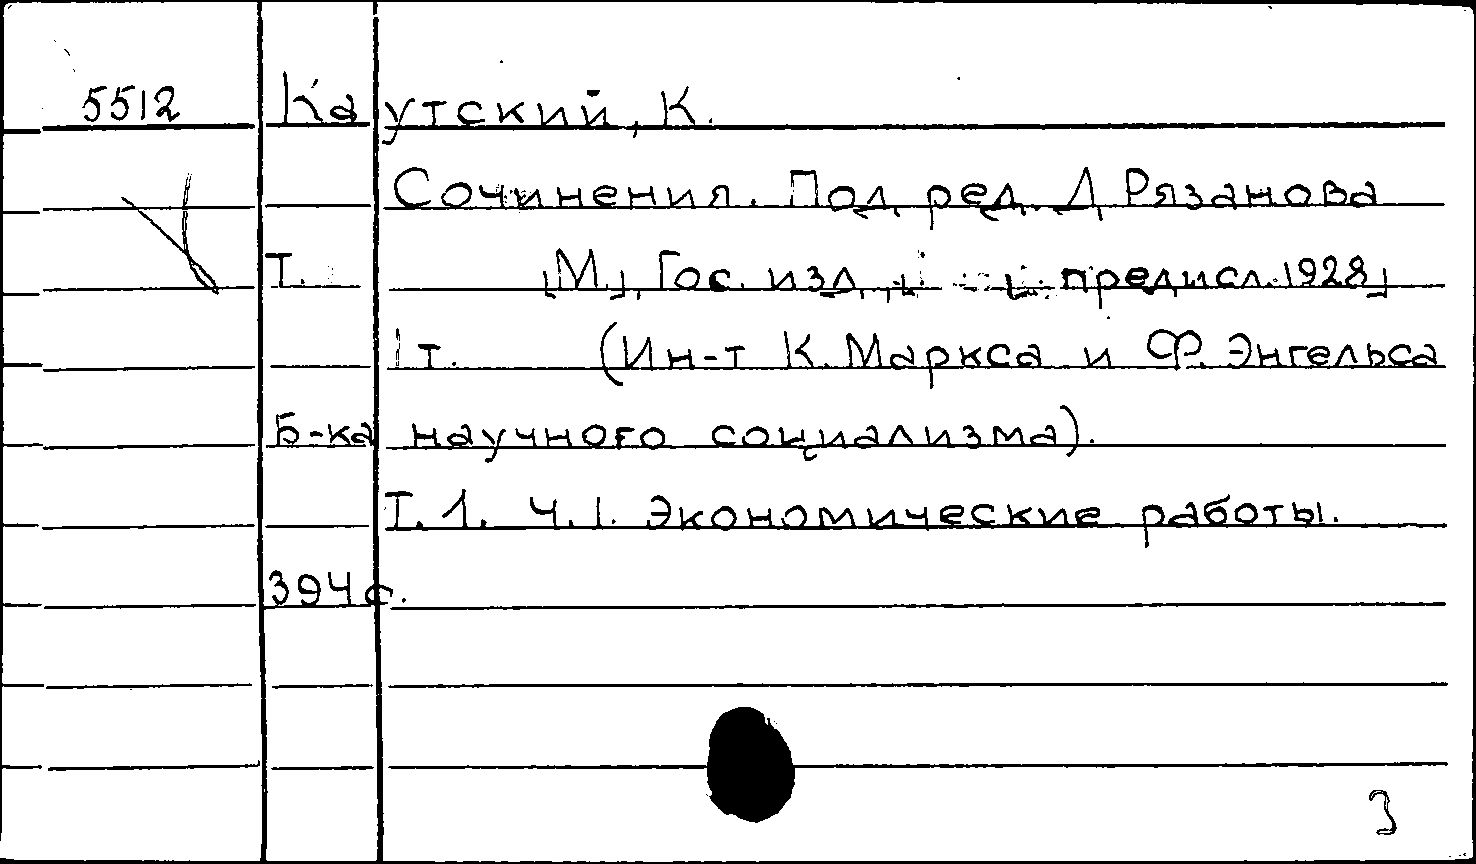 5512 Каутский, К.
Сочинения. Под ред. Д Рязанова
Т. [М.], Гос. изд, предисл. 1928]
1 т. (Ин-т К. Маркса и Ф. Энгельса
Б-ка научного социализма).
Т. 1. Ч. 1. Экономические работы.
394 с.
3